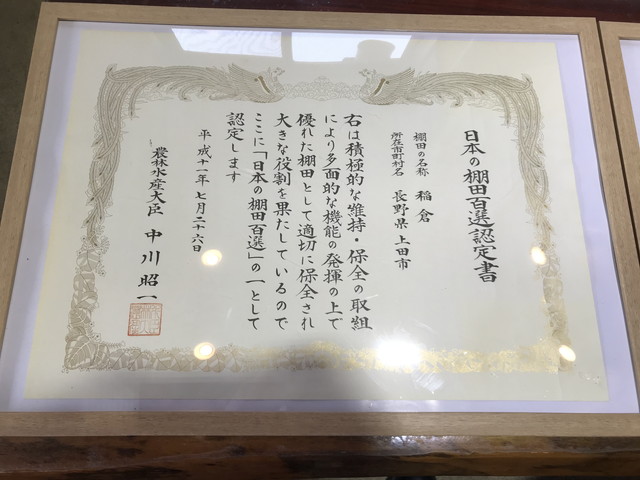 日本の棚田百選認定書
棚田の名称 稲倉
所在市町村名 長野県上田市
右は積極的な維持・保全の取組
により多面的な機能の発揮の上で
優れた棚田として適切に保全され
大きな役割を果たしているので
ここに「日本の棚田百選」の一として
認定します
平成十一年七月二十六日
農林水産大臣 中川昭一